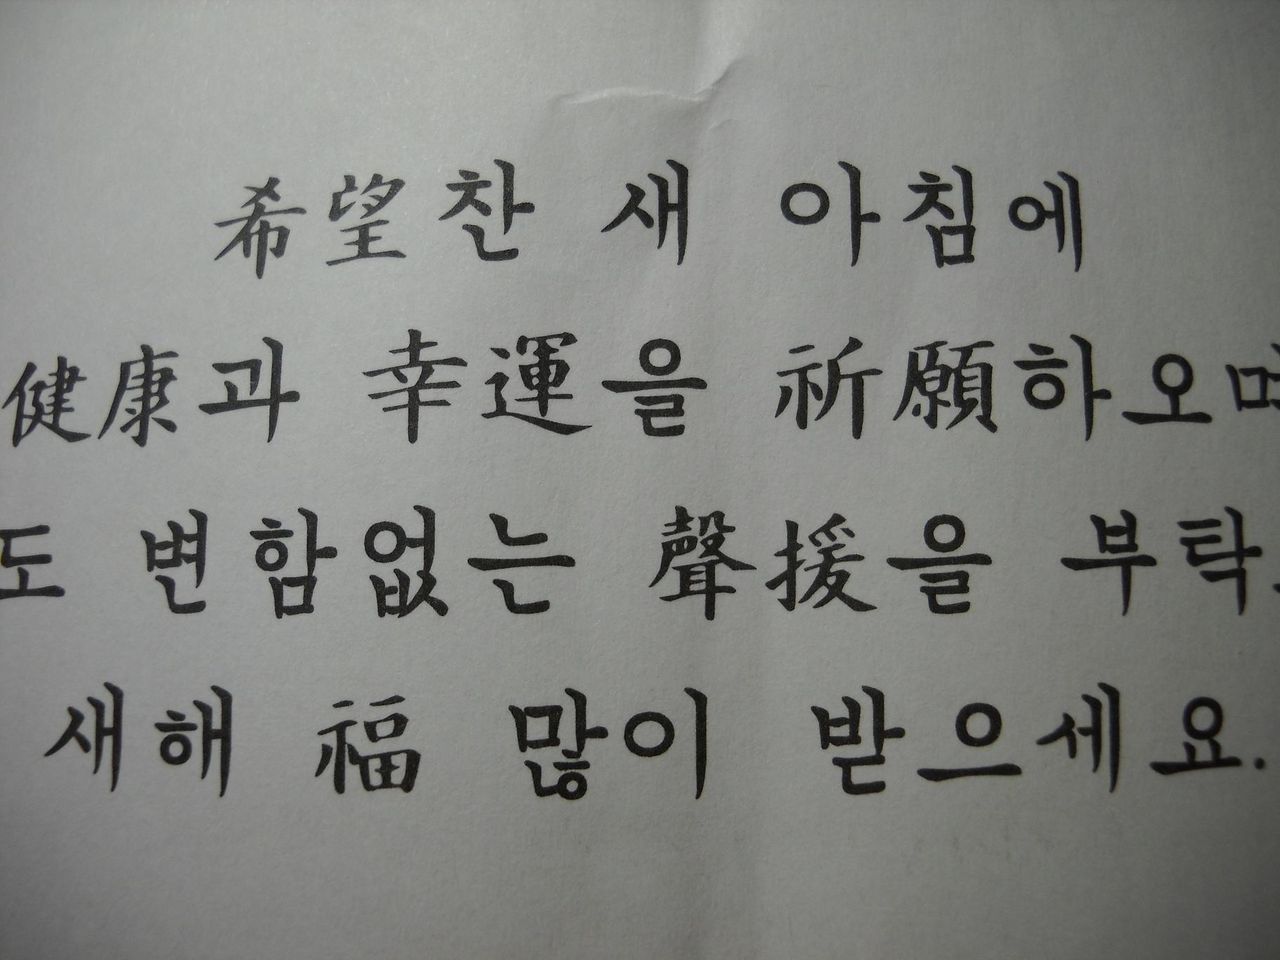 希望찬 새 아침에
健康과 幸運을 祈願하오며
도 변함없는 聲援을 부탁
새해 福 많이 받으세요.